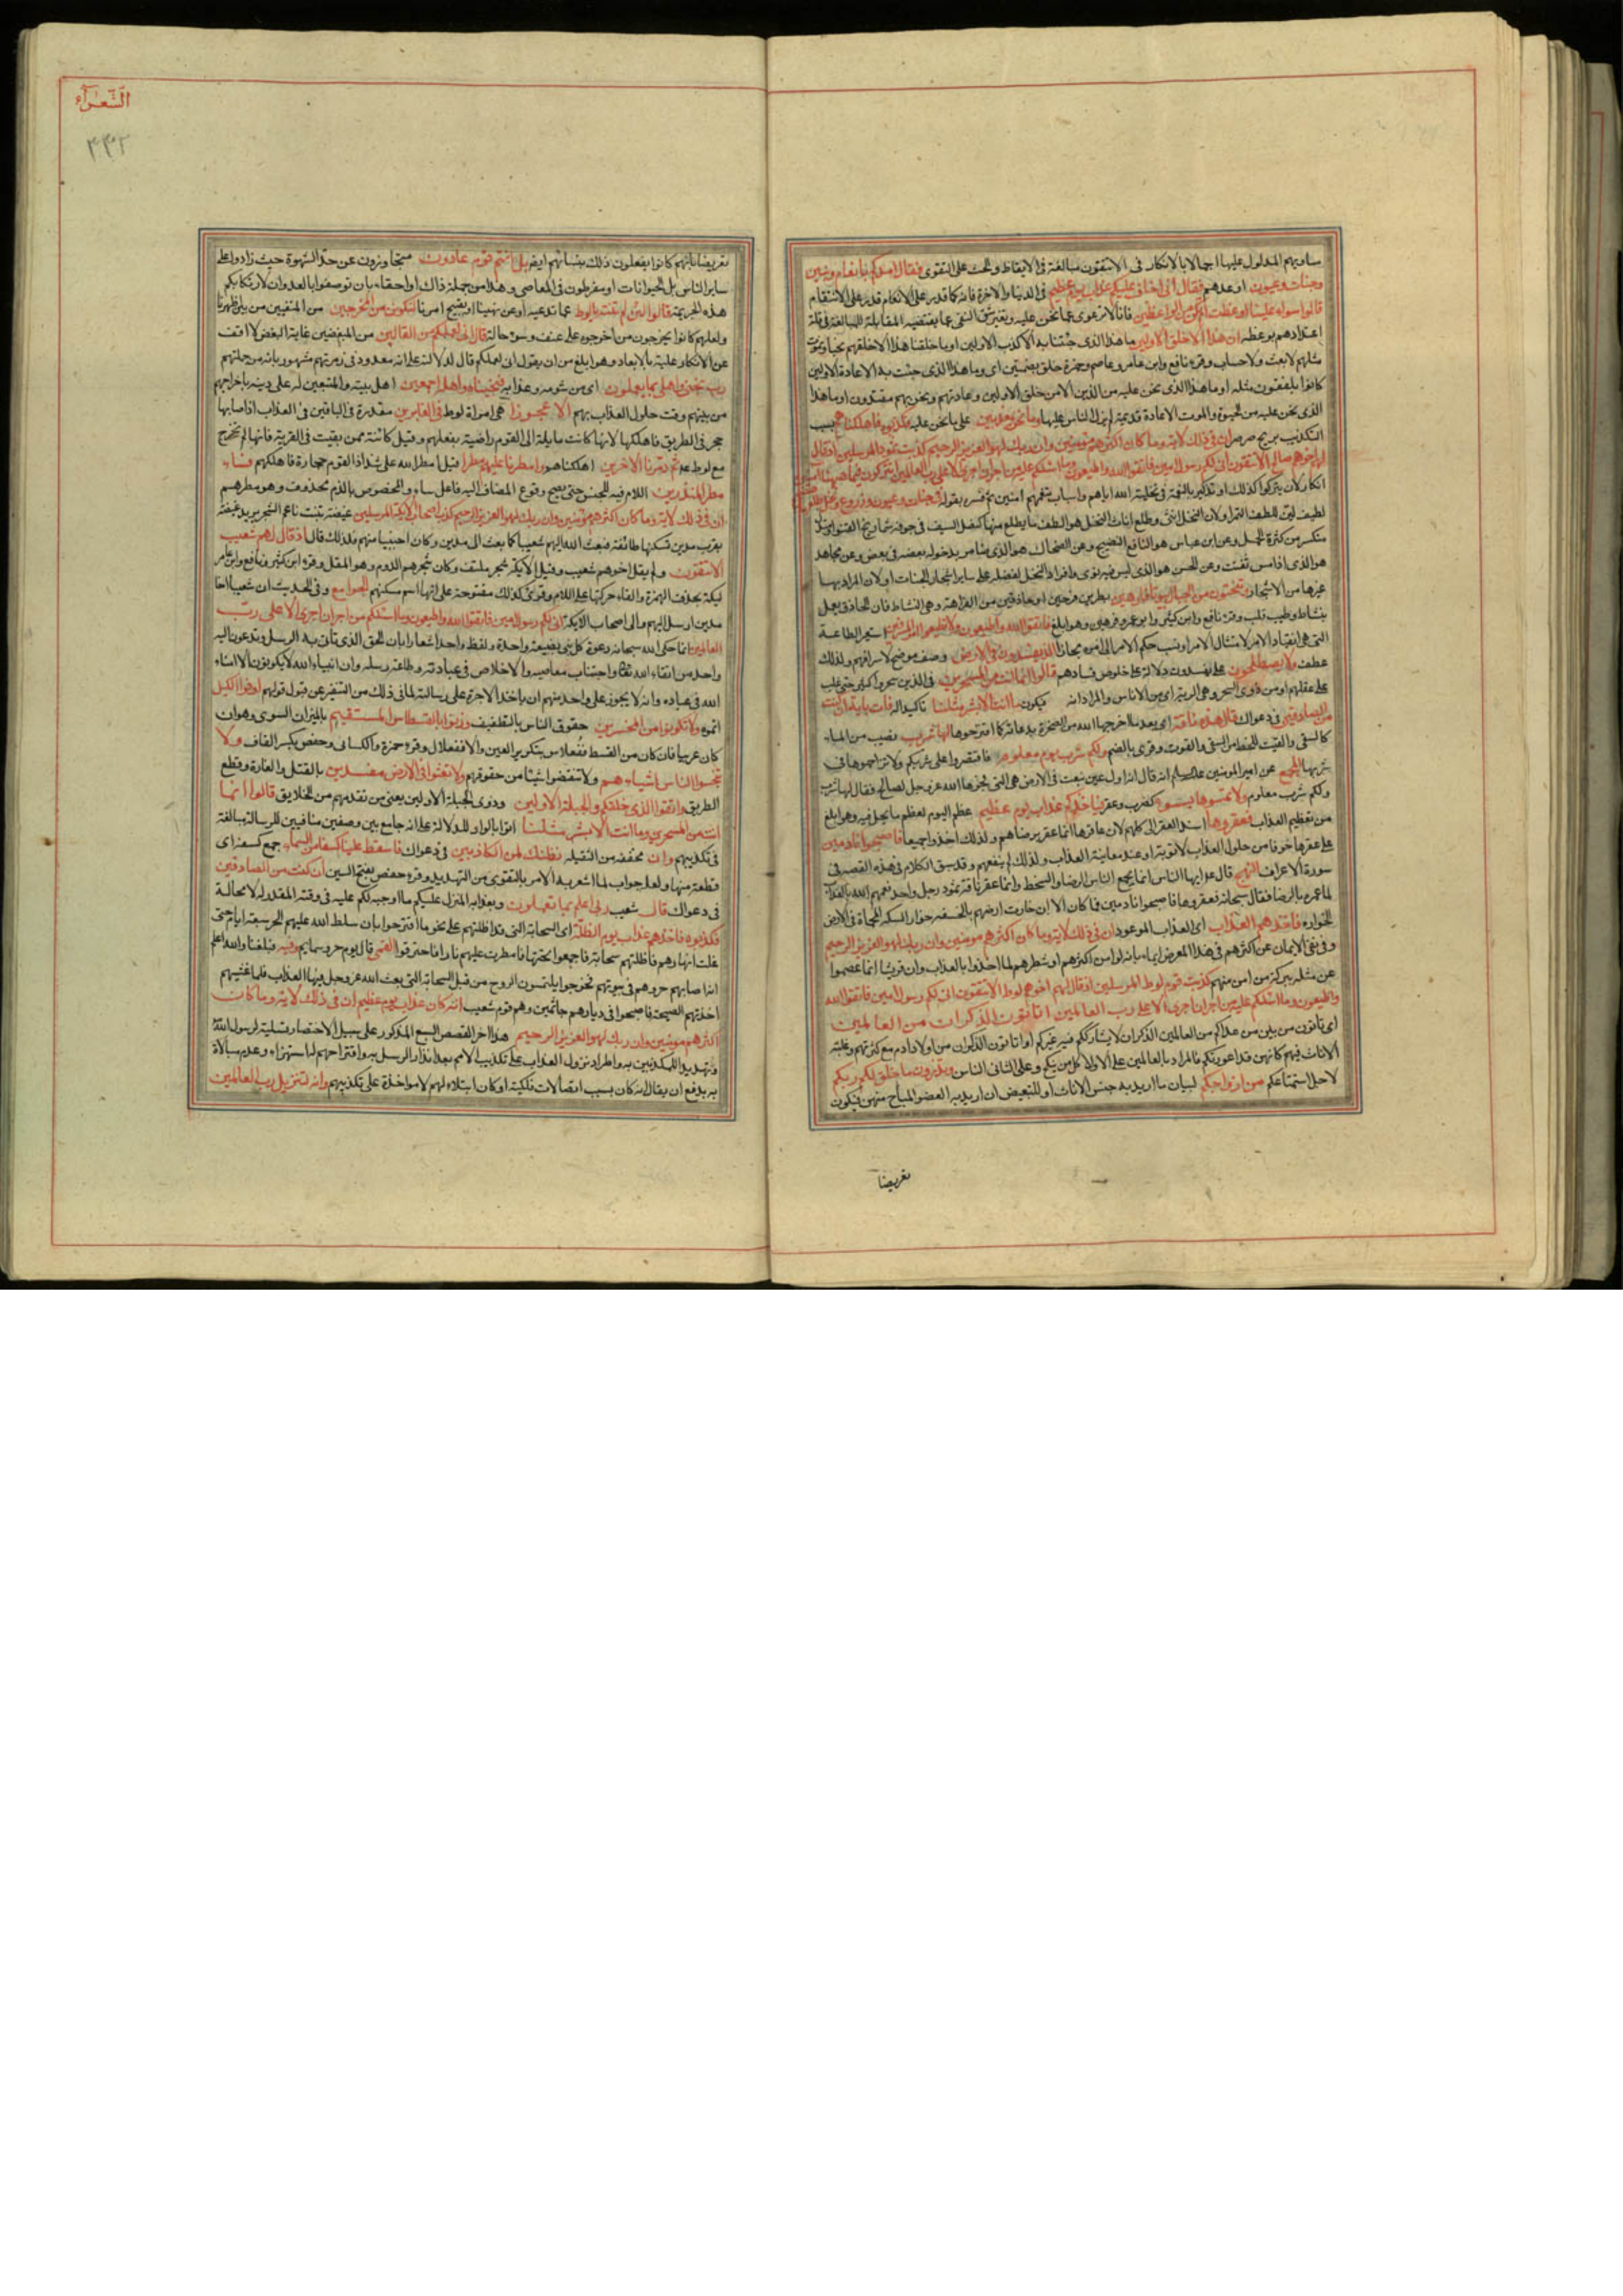 مساويهم المدلول عليها اجمالا بالانكار في الا تتقون مبالغة في الايقاظ والحث على التقوى فقال امدكم بانعام وبنين
وجنات وعيون اوعدهم فقال انى اخاف عليكم عذاب يوم عظيم في الدنيا والاخرة فانه كما قدر على الانعام قدر على الانتقام
قالوا سواء علينا اوعظت ام لم تكن من الواعظين فانا لا نرعوى عما نحن عليه وتغيير شق النفى عما يقتضيه المقابلة للمبالغة في قلة
اعتدادهم بوعظه ان هذا الا خلق الاولين ما هذا الذى جئتنا به الا كذب الاولين او ما خلقنا هذا الا خلقهم نحيا ونموت
مثلهم لا بعث ولا حساب وقرء نافع وابن عامر وعاصم وحمزة خلق بضمتين اى وما هذا الذى جئت به الا عادة الاولين
كانوا يلفقون مثله او ما هذا الذى نحن عليه من الدين الا من خلق الاولين وعادتهم ونحن بهم مقتدون او ما هذا
الذى نحن عليه من الحيوة والموت الا عادة قديمة لم يزل الناس عليها وما نحن بمعذبين على ما نحن عليه فكذبوه فاهلكناهم بسبب
التكذيب بريح صرصر ان في ذلك لاية وما كان اكثرهم مؤمنين وان ربك لهو العزيز الرحيم كذبت ثمود المرسلين اذ قال
لهم اخوهم صالح الا تتقون انى لكم رسول امين فاتقوا الله واطيعون وما اسئلكم عليه من اجر ان اجرى الا على رب العالمين اتتركون فيما ههنا امنين
انكار لان يتركوا كذلك او تذكير بالنعمة في تخلية الله اياهم واسباب تنعمهم امنين ثم فسره بقوله في جنات وعيون وزروع ونخل طلعها هضيم
لطيف لين للطف الثمر او لان النخل انثى وطلع اناث النخل هو الطف ما يطلع منها كنصل السيف في جوفه شماريخ القنو او متدل
منكسر من كثرة الحمل وعن ابن عباس هو اليانع النضيج وعن الضحاك هو الذى ضامر يدخل بعضه في بعض وعن مجاهد
هو الذى اذا مس تفتت وعن الحسن هو الذى ليس فيه نوى وافراد النخل لفضله على ساير اشجار الجنات او لان المراد بها
غيرها من الاشجار وتنحتون من الجبال بيوتا فارهين بطرين فرحين او حاذقين من الفراهة وهى النشاط فان الحاذق يعمل
بنشاط وطيب قلب وقرء نافع وابن كثير وابو عمرو فرهين وهو ابلغ فاتقوا الله واطيعون ولا تطيعوا امر المسرفين استعير الطاعة
التى هى انقياد الامر لامتثال الامر او نسب حكم الامر الى امره مجازا الذين يفسدون في الارض وصف موضح لاسرافهم ولذلك
عطف ولا يصلحون على يفسدون دلالة على خلوص فسادهم قالوا انما انت من المسحرين في الذين سحروا كثيرا حتى غلب
على عقلهم او من ذوى السحر وهى الرية اى من الاناس والمراد انه فيكون ما انت الا بشر مثلنا تاكيدا له فات باية ان كنت
من الصادقين في دعواك قال هذه ناقة اى بعد ما اخرجها الله من الصخرة بدعائه كما اقترحوها لها شرب نصيب من الماء
كالسقى والقيت للحظ من السقى والقوت وقرى بالضم ولكم شرب يوم معلوم فاقتصروا على شربكم ولا تزاحموها في
شربها المجمع عن امير المؤمنين عليه السلام انه قال انه اول عين نبعت في الارض هى التى فجرها الله عز وجل لصالح فقال لها شرب
ولكم شرب يوم معلوم ولا تمسوها بسوء كضرب وعقر فياخذكم عذاب يوم عظيم عظم اليوم لعظم ما يحل فيه وهو ابلغ
من تعظيم العذاب فعقروها اسند العقر الى كلهم لان عاقرها انما عقر برضاهم ولذلك اخذوا جميعا فاصبحوا نادمين
على عقرها خوفا من حلول العذاب لا توبة او عند معاينة العذاب ولذلك لم ينفعهم وقد سبق الكلام في هذه القصة في
سورة الاعراف النهج قال ع ايها الناس انما يجمع الناس الرضا والسخط وانما عقر ناقة ثمود رجل واحد فعمهم الله بالعذاب
لما عموه بالرضا فقال سبحانه فعقروها فاصبحوا نادمين فما كان الا ان خارت ارضهم بالخسفة خوار السكة المحماة في الارض
الخوارة فاخذهم العذاب اى العذاب الموعود ان في ذلك لاية وما كان اكثرهم مؤمنين وان ربك لهو العزيز الرحيم
وفى نفى الايمان عن اكثرهم في هذا المعرض ايماء بانه لو امن اكثرهم او شطرهم لما اخذوا بالعذاب وان قريشا انما عصموا
عن مثله ببركة من امن منهم كذبت قوم لوط المرسلين اذ قال لهم اخوهم لوط الا تتقون انى لكم رسول امين فاتقوا الله
واطيعون وما اسئلكم عليه من اجر ان اجرى الا على رب العالمين اتاتون الذكران من العالمين
اى تاتون من بين من عداكم من العالمين الذكران لا يشارككم فيه غيركم او اتاتون الذكران من اولاد ادم مع كثرتهم وغلبة
الاناث فيهم كانهن قد اعوزنكم فالمراد بالعالمين على الاول كل من ينكح وعلى الثانى الناس وتذرون ما خلق لكم ربكم
لاجل استمتاعكم من ازواجكم لبيان ما اريد به جنس الاناث او للتبعيض ان اريد به العضو المباح منهن فيكون
تعريضا
الشعراء
۴۴۲
تعريضا بانهم كانوا يفعلون ذلك بنسائهم ايضا بل انتم قوم عادون متجاوزون عن حد الشهوة حيث زادوا على
ساير الناس بل الحيوانات او مفرطون في المعاصى وهذا من جملة ذاك او احقاء بان توصفوا بالعدوان لارتكابكم
هذه الجريمة قالوا لئن لم تنته يا لوط عما تدعيه او عن نهينا او تقبيح امرنا لتكونن من المخرجين من المنفيين من بين اظهرنا
ولعلهم كانوا يخرجون من اخرجوه على عنف وسوء حال قال انى لعملكم من القالين من المبغضين غاية البغض لا اقف
عن الانكار عليه بالابعاد وهو ابلغ من ان يقول انى لعملكم قال لدلالته على انه معدود في زمرتهم مشهور بانه من جملتهم
رب نجنى واهلى مما يعملون اى من شومه وعذابه فنجيناه واهله اجمعين اهل بيته والمتبعين له على دينه باخراجهم
من بينهم وقت حلول العذاب بهم الا عجوزا هى امراة لوط في الغابرين مقدرة في الباقين في العذاب اذ اصابها
حجر في الطريق فاهلكها لانها كانت مايلة الى القوم راضية بفعلهم وقيل كائنة ممن بقيت في القرية فانها لم تخرج
مع لوط ع ثم دمرنا الاخرين اهلكناهم وامطرنا عليهم مطرا قيل امطر الله على شذاذ القوم حجارة فاهلكهم فساء
مطر المنذرين اللام فيه للجنس حتى يصح وقوع المضاف اليه فاعل ساء والمخصوص بالذم محذوف وهو مطرهم
ان في ذلك لاية وما كان اكثرهم مؤمنين وان ربك لهو العزيز الرحيم كذب اصحاب الايكة المرسلين غيضة تنبت ناعم الشجر يريد غيضة
بقرب مدين تسكنها طائفة فبعث الله اليهم شعيبا كما بعث الى مدين وكان اجنبيا منهم فلذلك قال اذ قال لهم شعيب
الا تتقون ولم يقل اخوهم شعيب وقيل الايكة شجر ملتف وكان شجرهم الدوم وهو المقل وقرء ابن كثير ونافع وابن عامر
ليكة بحذف الهمزة والقاء حركتها على اللام وقرئت كذلك مفتوحة على انها اسم مسكنهم الجوامع وفى الحديث ان شعيبا اخا
مدين ارسل اليهم والى اصحاب الايكة انى لكم رسول امين فاتقوا الله واطيعون وما اسئلكم من اجر ان اجرى الا على رب
العالمين انما حكى الله سبحانه دعوة كل نبى بصيغة واحدة ولفظ واحد اشعارا بان الحق الذى تاتى به الرسل وتدعون اليه
واحد من اتقاء الله تعالى واجتناب معاصيه والاخلاص في عبادته وطاعة رسله وان انبياء الله لا يكونون الا امناء
الله في عباده وانه لا يجوز على واحد منهم ان ياخذ الاجرة على رسالته لما في ذلك من التنفير عن قبول قولهم اوفوا الكيل
اتموه ولا تكونوا من المخسرين حقوق الناس بالتطفيف وزنوا بالقسطاس المستقيم بالميزان السوى وهو ان
كان عربيا فان كان من القسط ففعلاس بتكرير العين والا ففعلال وقرء حمزة والكسائى وحفص بكسر القاف ولا
تبخسوا الناس اشياءهم ولا تنقصوا شيئا من حقوقهم ولا تعثوا في الارض مفسدين بالقتل والغارة وقطع
الطريق واتقوا الذى خلقكم والجبلة الاولين وذوى الجبلة الاولين يعنى من تقدمهم من الخلايق قالوا انما
انت من المسحرين وما انت الا بشر مثلنا اتوا بالواو للدلالة على انه جامع بين وصفين منافيين للرسالة مبالغة
في تكذيبهم وان مخففة من الثقيلة نظنك لمن الكاذبين في دعواك فاسقط علينا كسفا من السماء جمع كسفة اى
قطعة منها ولعله جواب لما اشعر به الامر بالتقوى من التهديد وقرء حفص بفتح السين ان كنت من الصادقين
في دعواك قال شعيب ربى اعلم بما تعملون وبعذابه المنزل عليكم ما اوجبه لكم عليه في وقته المقدر له لا محالة
فكذبوه فاخذهم عذاب يوم الظلة اى السحابة التى قد اظلتهم على نحو ما اقترحوا بان سلط الله عليهم الحر سبعة ايام حتى
غلت انهارهم فاظلتهم سحابة فاجتمعوا تحتها فامطرت عليهم نارا فاحترقوا القمى قال يوم حر وسمايم وفيه فبلغنا والله اعلم
انه اصابهم حر وهم في بيوتهم فخرجوا يلتمسون الروح من قبل السحابة التى بعث الله عز وجل فيها العذاب فلما غشيهم
اخذتهم الصيحة فاصبحوا في ديارهم جاثمين وهم قوم شعيب انه كان عذاب يوم عظيم ان في ذلك لاية وما كان
اكثرهم مؤمنين وان ربك لهو العزيز الرحيم هذا اخر القصص السبع المذكور على سبيل الاختصار تسلية لرسول الله
وتهديدا للمكذبين به واطراد نزول العذاب على تكذيب الامم بعد انذار الرسل به واقتراحهم له استهزاء وعدم مبالاة
به يدفع ان يقال انه كان بسبب اتصالات فلكية او كان ابتلاء لهم لا مواخذة على تكذيبهم وانه لتنزيل رب العالمين